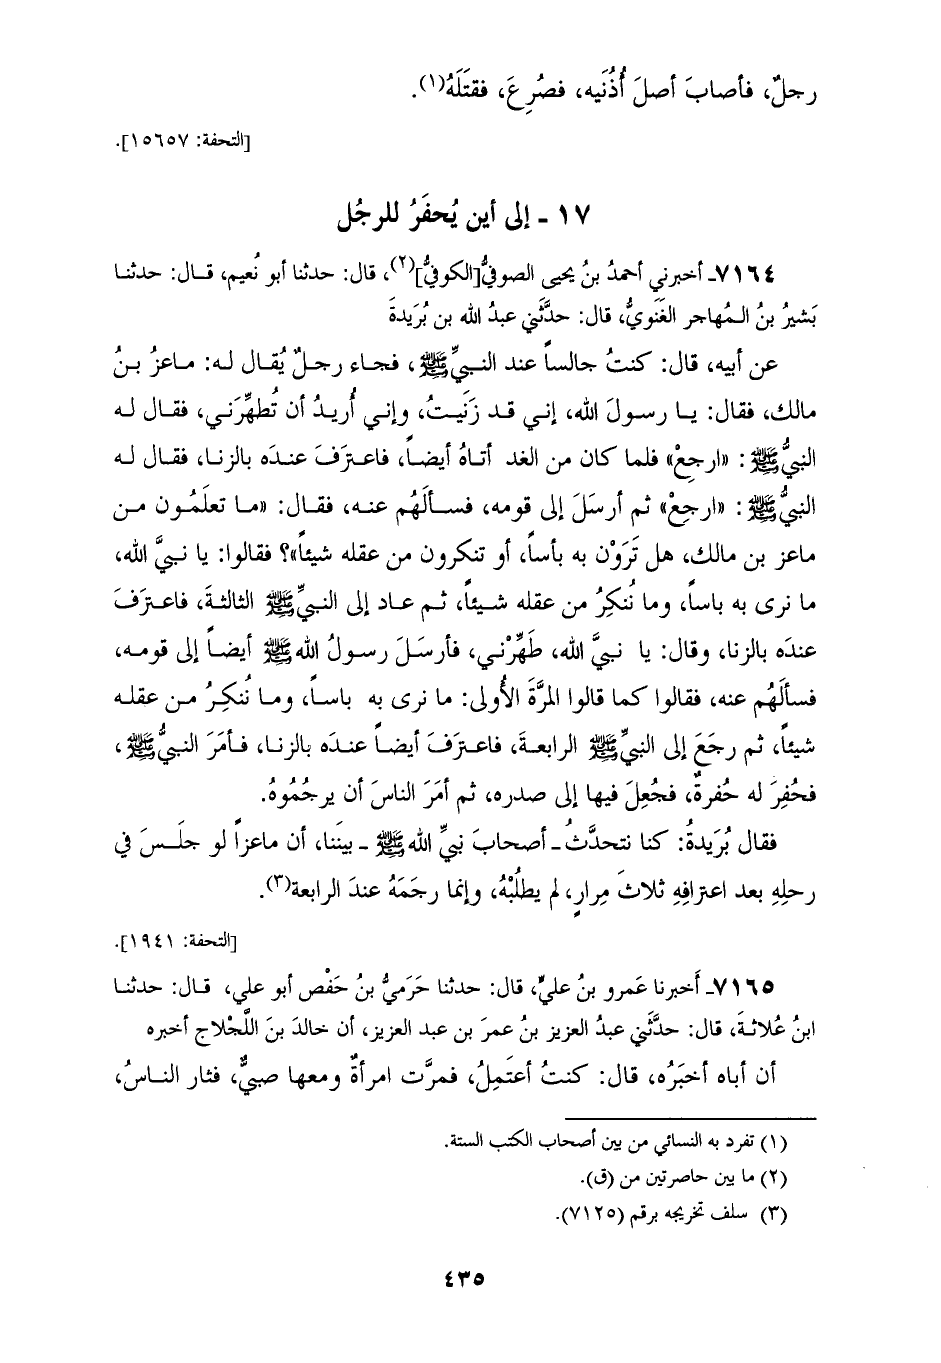 رجلٌ، فأصابَ أصلَ أُذُنَيه، فصُرِعَ، فقتَلَهُ(١).
[التحفة: ١٥٦٥٧].
١٧ - إلى أين يُحفَرُ للرجُل
٧١٦٤- أخبرني أحمدُ بنُ يحيى الصوفيُّ[الكوفيُّ](٢)، قال: حدثنا أبو نُعيم، قال: حدثنا
بَشيرُ بنُ المُهاجر الغَنَويُّ، قال: حدَّثَني عبدُ الله بن بُرَيدةَ
عن أبيه، قال: كنتُ جالساً عند النبيِّ ﷺ، فجاء رجلٌ يُقال له: ماعزُ بنُ
مالك، فقال: يا رسولَ الله، إني قد زَنَيتُ، وإني أُريدُ أن تُطهِّرَني، فقال له
النبيُّ ﷺ: «ارجِعْ» فلما كان من الغد أتاهُ أيضاً، فاعترَفَ عندَه بالزنا، فقال له
النبيُّ ﷺ: «ارجِعْ» ثم أرسَلَ إلى قومه، فسألَهُم عنه، فقال: «ما تعلَمُون من
ماعز بن مالك، هل تَرَوْن به بأساً، أو تنكرون من عقله شيئاً»؟ فقالوا: يا نبيَّ الله،
ما نرى به باساً، وما نُنكِرُ من عقله شيئاً، ثم عاد إلى النبيِّ ﷺ الثالثةَ، فاعترَفَ
عندَه بالزنا، وقال: يا نبيَّ الله، طَهِّرْني، فأرسَلَ رسولُ الله ﷺ أيضاً إلى قومه،
فسألَهُم عنه، فقالوا كما قالوا المرَّةَ الأُولى: ما نرى به باساً، وما نُنكِرُ من عقله
شيئاً، ثم رجَعَ إلى النبيِّ ﷺ الرابعةَ، فاعترَفَ أيضاً عندَه بالزنا، فأمَرَ النبيُّ ﷺ،
فحُفِرَ له حُفرةٌ، فجُعِلَ فيها إلى صدره، ثم أمَرَ الناسَ أن يرجُمُوهُ.
فقال بُرَيدةُ: كنا نتحدَّثُ - أصحابَ نبيِّ الله ﷺ - بينَنا، أن ماعزاً لو جلَسَ في
رحلِهِ بعد اعترافِهِ ثلاثَ مِرارٍ، لم يطلُبْهُ، وإنما رجَمَهُ عندَ الرابعة(٣).
[التحفة: ١٩٤١].
٧١٦٥- أَخبرنا عَمرو بنُ عليٍّ، قال: حدثنا حَرَميُّ بنُ حَفْص أبو علي، قال: حدثنا
ابنُ عُلاثةَ، قال: حدَّثَني عبدُ العزيز بنُ عمرَ بن عبد العزيز، أن خالدَ بنَ اللَّجْلاج أخبره
أن أباه أخبَرُه، قال: كنتُ أعتَمِلُ، فمرَّت امرأةٌ ومعها صبيٌّ، فثار الناسُ،
(١) تفرد به النسائي من بين أصحاب الكتب الستة.
(٢) ما بين حاصرتين من (ق).
(٣) سلف تخريجه برقم (٧١٢٥).
٤٣٥